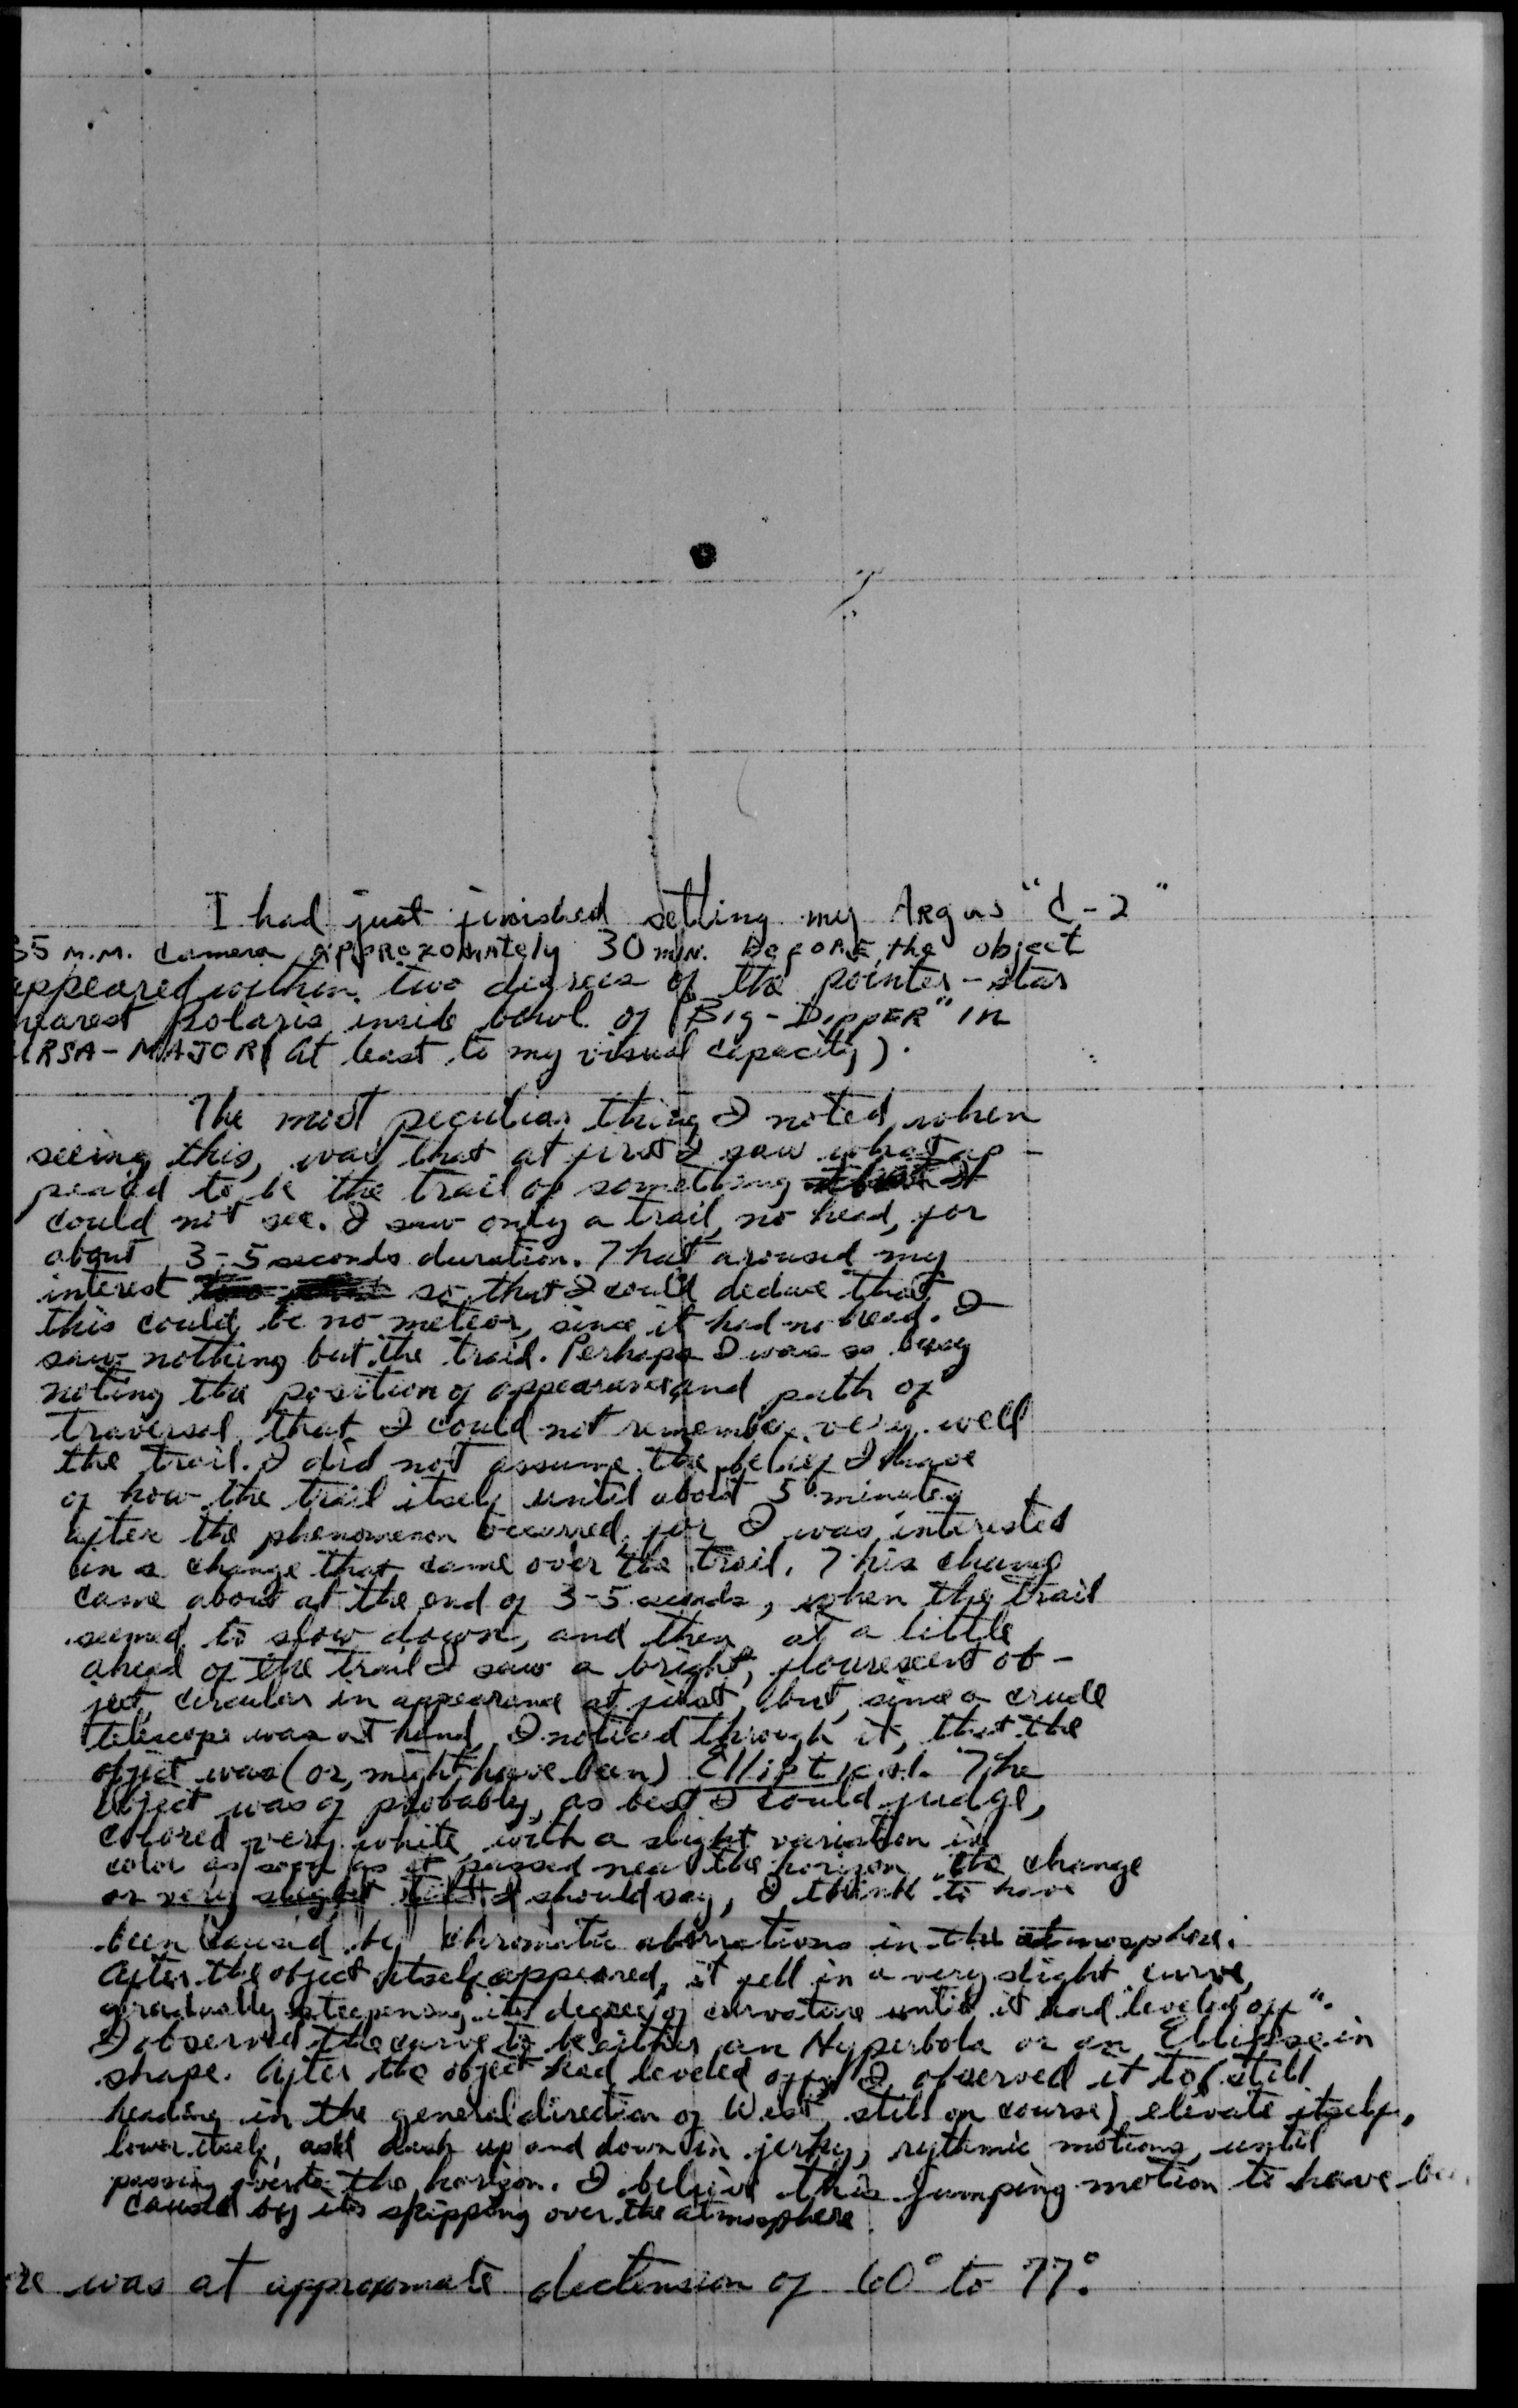 I had just finished setting my Argus "C-2"
35 M.M. camera, APPROXOMATELY 30 MIN. BEFORE the object
appeared within two degrees of the pointer-star
nearest polaris inside bowl of "Big-DippER" in
URSA-MAJOR (at least to my visual capacity).
The most peculiar thing I noted, when
seeing this, was that at first I saw what ap-
peared to be the trail of something
could not see. I saw only a trail, no head, for
about 3-5 seconds duration. That aroused my
interest so that I could deduce that
this could be no meteor, since it had no head. I
saw nothing but the trail. Perhaps I was so busy
noting the position of appearance and path of
traversal that I could not remember very well
the trail. I did not assume the belief I have
of how the trail itself until about 5 minutes
after the phenomenon occurred, for I was interested
in a change that came over the trail. This change
came about at the end of 3-5 seconds, when the trail
seemed to slow down, and then at a little
ahead of the trail I saw a bright, flourescent ob-
ject, circular in appearance at first, but, since a crude
telescope was at hand, I noticed through it, that the
object was (or, might have been) Elliptical. The
object was of probably, as best I could judge,
colored very white, with a slight variation in
color as soon as it passed near the horizon, the change
or very slight I should say, I think to have
been caused by chromatic abberations in the atmosphere.
After the object itself appeared, it fell in a very slight curve,
gradually steepening its degree of curvature until it had "leveled off".
I observed the curve to be either an Hyperbola or an Ellipse in
shape. After the object had leveled off, I observed it to (still
heading in the general direction of West, still on course) elevate itself,
lower itself, and dash up and down in jerky, rythmic motions, until
passing over the horizon. I believe this jumping motion to have
caused by its skipping over the atmosphere.
was at approxomate declension of 60° to 77°.